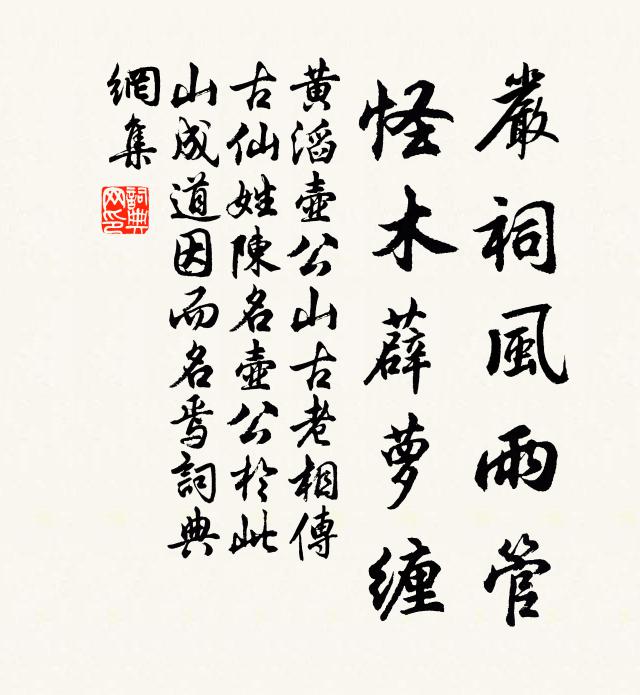 嚴祠風雨管
怪木薜蘿纏
黄滔壺公山古老相傳
古仙姓陳名壺公於此
山成道因而名焉詞典
網集
詞典
网印